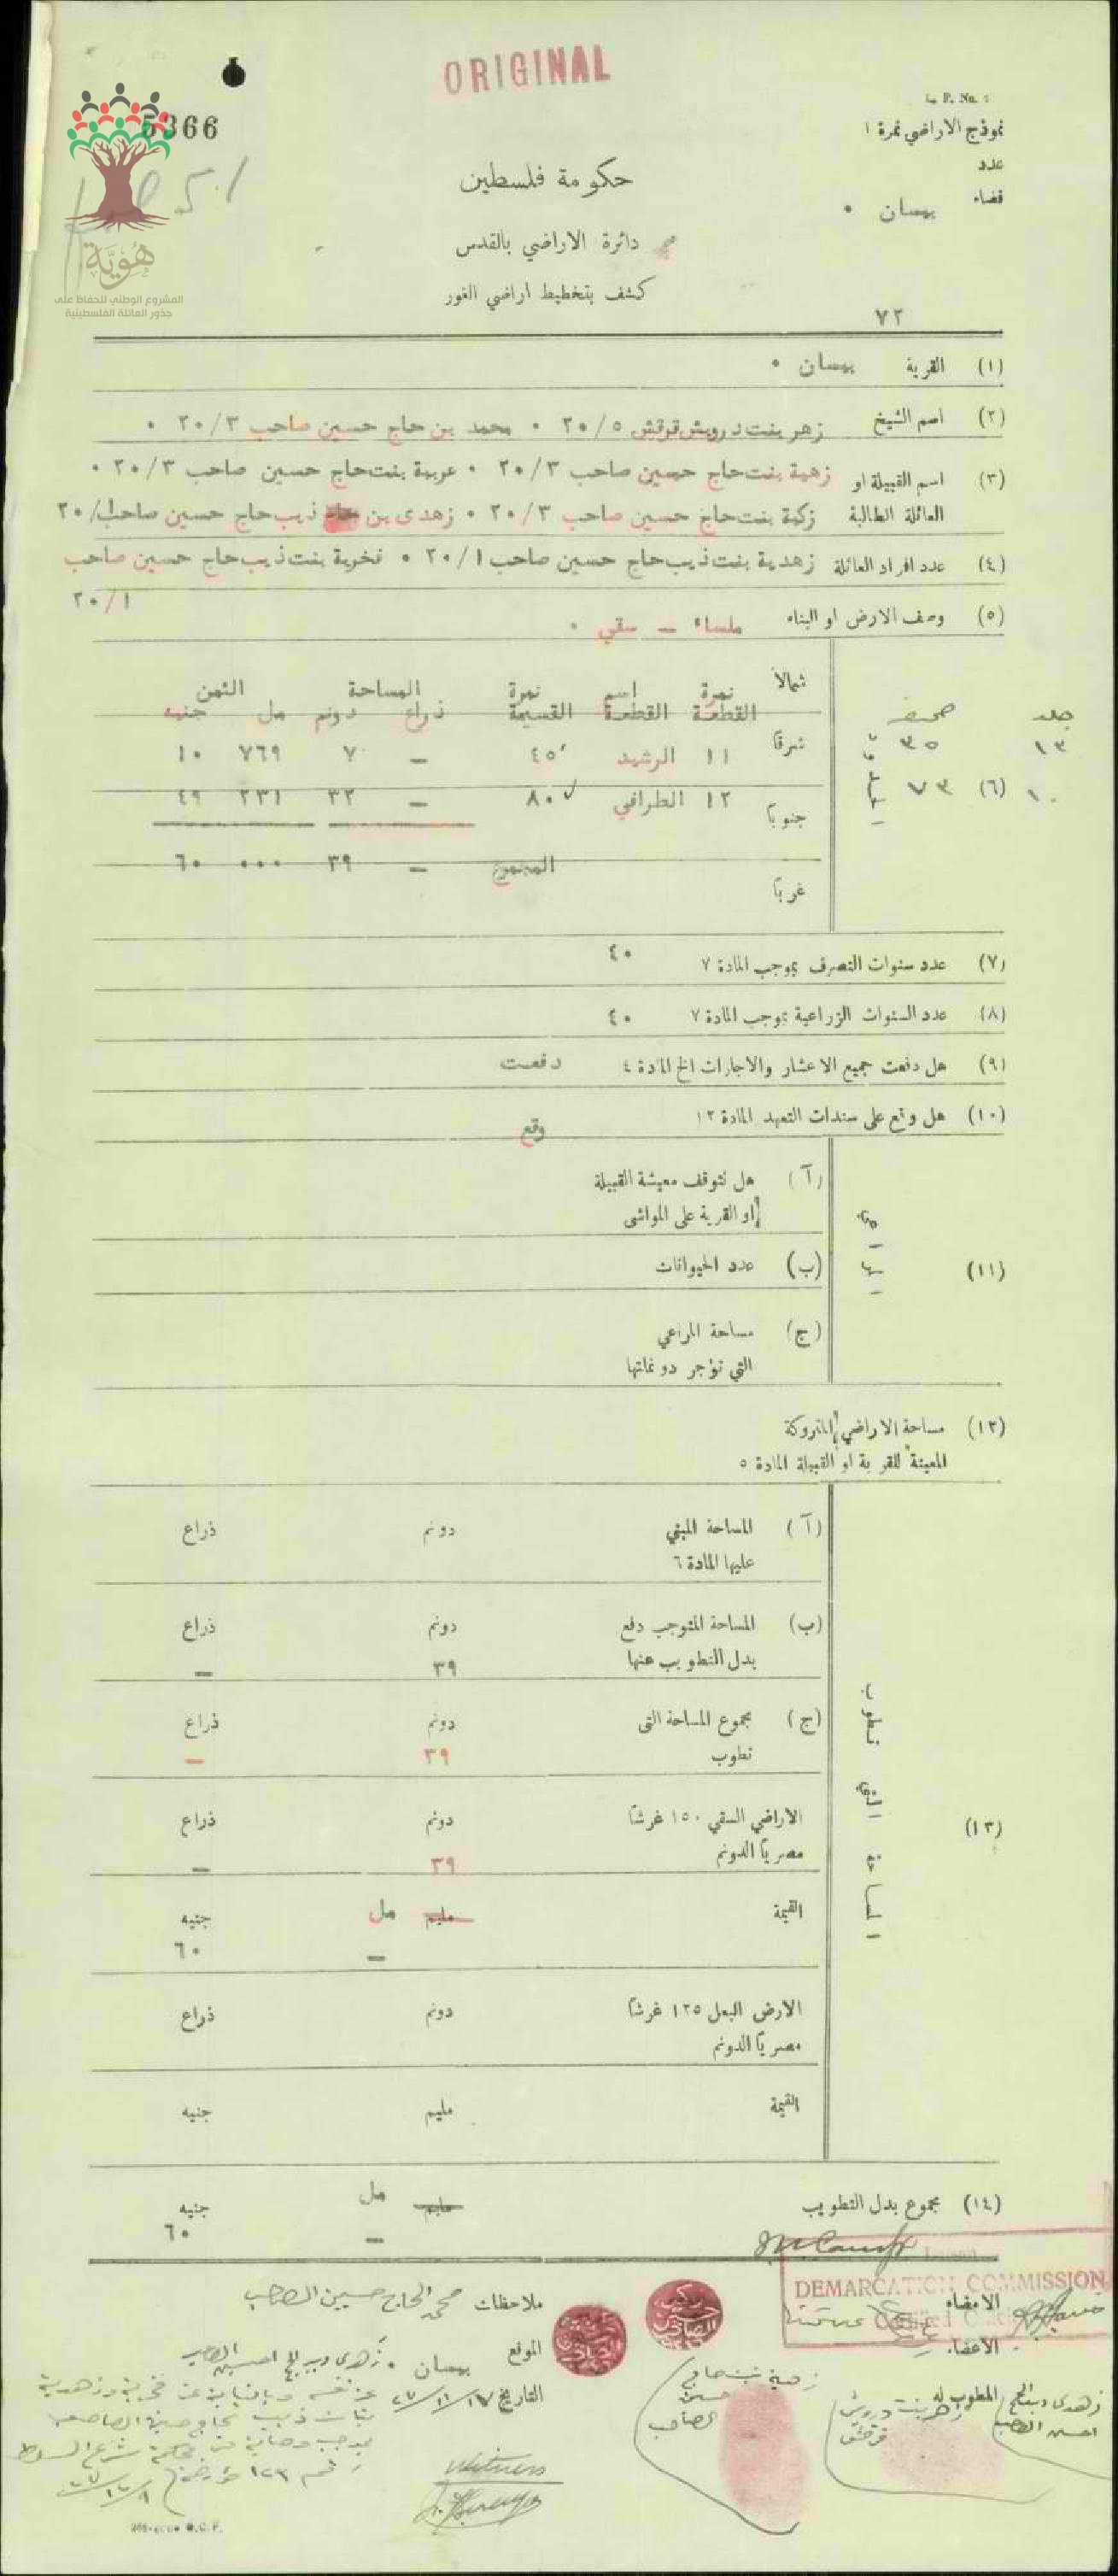 ORIGINAL
5366
L. P. No.
نموذج الاراضي نمرة ١
عدد
قضاء بيسان •
حكومة فلسطين
دائرة الاراضي بالقدس
كشف بتخطيط اراضي الغور
هُويَّة
المشروع الوطني للحفاظ على
جذور العائلة الفلسطينية
٧٢
(١) القرية بيسان •
(٢) اسم الشيخ زهر بنت درويش قرقش ٢٠/٥ • محمد بن حاج حسين صاحب ٢٠/٣ •
(٣) اسم القبيلة او زهية بنت حاج حسين صاحب ٢٠/٣ • عربية بنت حاج حسين صاحب ٢٠/٣ •
العائلة الطالبة زكية بنت حاج حسين صاحب ٢٠/٣ • زهدى بن ذيب حاج حسين صاحب ٢٠/١
(٤) عدد افراد العائلة زهدية بنت ذيب حاج حسين صاحب ٢٠/١ • فخرية بنت ذيب حاج حسين صاحب
٢٠/١
(٥) وصف الارض او البناء ملساء – سقي •
شمالاً
نمرة اسم نمرة المساحة الثمن
القطعة القطعة القسيمة ذراع دونم مل جنيه
جلد صحيفة
شرقاً
١٣ ٣٥ ١١ الرشيد ٤٥ – ٧ ٧٦٩ ١٠
١٠ (٦) ٧٣ ١٢ الطرافي ٨٠ – ٣٢ ٢٣١ ٤٩
جنوباً
المجموع – ٣٩ ٠٠٠ ٦٠
غرباً
(٧) عدد سنوات التصرف بموجب المادة ٧ ٤٠
(٨) عدد السنوات الزراعية بموجب المادة ٧ ٤٠
(٩) هل دفعت جميع الاعشار والاجارات الخ المادة ٤ دفعت
(١٠) هل وقع على سندات التعهد المادة ١٢ وقع
(١١) المراعي
(آ) هل تتوقف معيشة القبيلة
او القرية على المواشي
(ب) عدد الحيوانات
(ج) مساحة المراعي
التي تؤجر دونماتها
(١٢) مساحة الاراضي المتروكة
المعينة للقرية او القبيلة المادة ٥
(١٣) المساحة التي تطوب
(آ) المساحة المبني دونم ذراع
عليها المادة ٦
(ب) المساحة المتوجب دفع دونم ذراع
بدل التطويب عنها ٣٩ –
(ج) مجموع المساحة التي دونم ذراع
تطوب ٣٩ –
الاراضي السقي ١٥٠ غرشاً دونم ذراع
مصرياً الدونم ٣٩ –
القيمة مليم مل جنيه
– ٦٠
الارض البعل ١٢٥ غرشاً دونم ذراع
مصرياً الدونم
القيمة مليم جنيه
(١٤) مجموع بدل التطويب مليم مل جنيه
– ٦٠
DEMARCATION COMMISSION
الامضاء
الاعضاء
ملاحظات محمد الحاج حسين الصاحب
الموقع بيسان •
التاريخ ١٧/١١/٢٧
المطوب له
زهر بنت درويش
قرقش
زهية بنت حاج
حسين
الصاحب
Witness